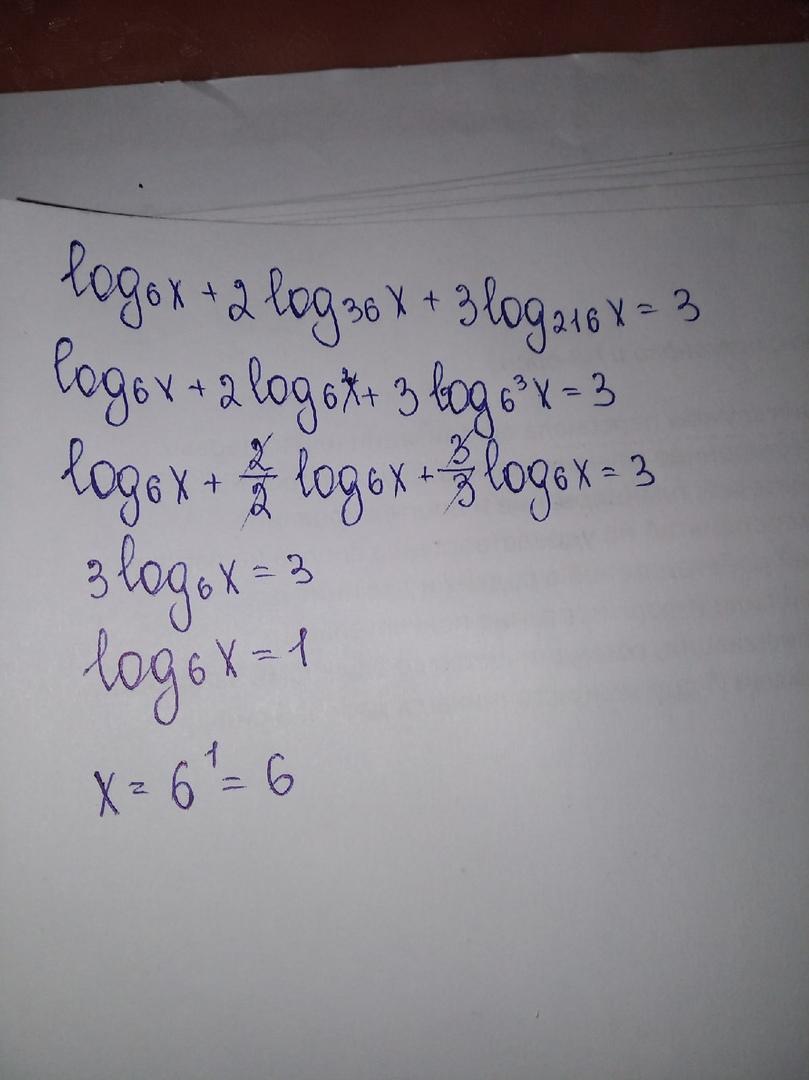 log₆x + 2log₃₆x + 3log₂₁₆x = 3
log₆x + 2log₆²x + 3log₆³x = 3
log₆x + 2/2 log₆x + 3/3 log₆x = 3
3log₆x = 3
log₆x = 1
x = 6¹ = 6